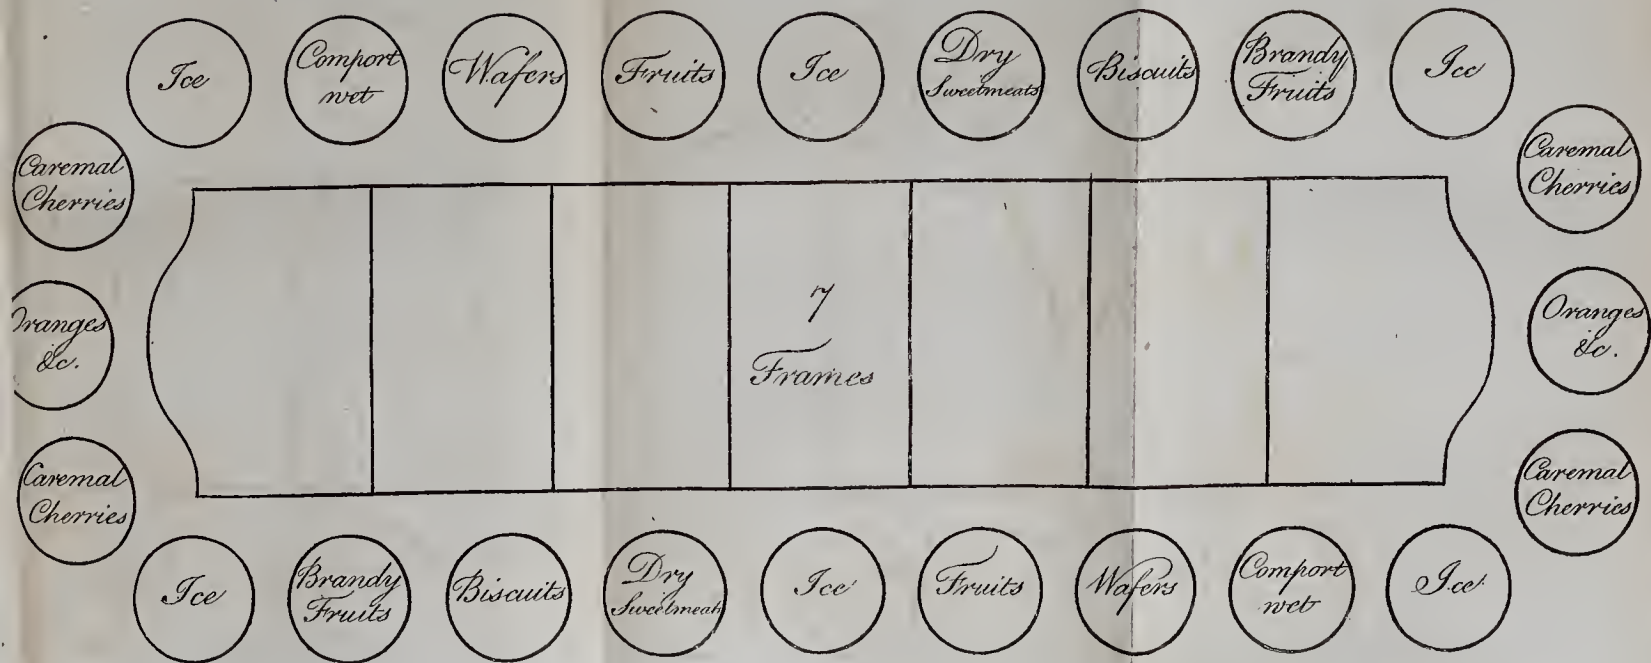 Ice
Comport
wet
Wafers
Fruits
Ice
Dry
Sweetmeats
Biscuits
Brandy
Fruits
Ice
Caremal
Cherries
Caremal
Cherries
Oranges
&c.
7
Frames
Oranges
&c.
Caremal
Cherries
Caremal
Cherries
Ice
Brandy
Fruits
Biscuits
Dry
Sweetmeats
Ice
Fruits
Wafers
Comport
wet
Ice